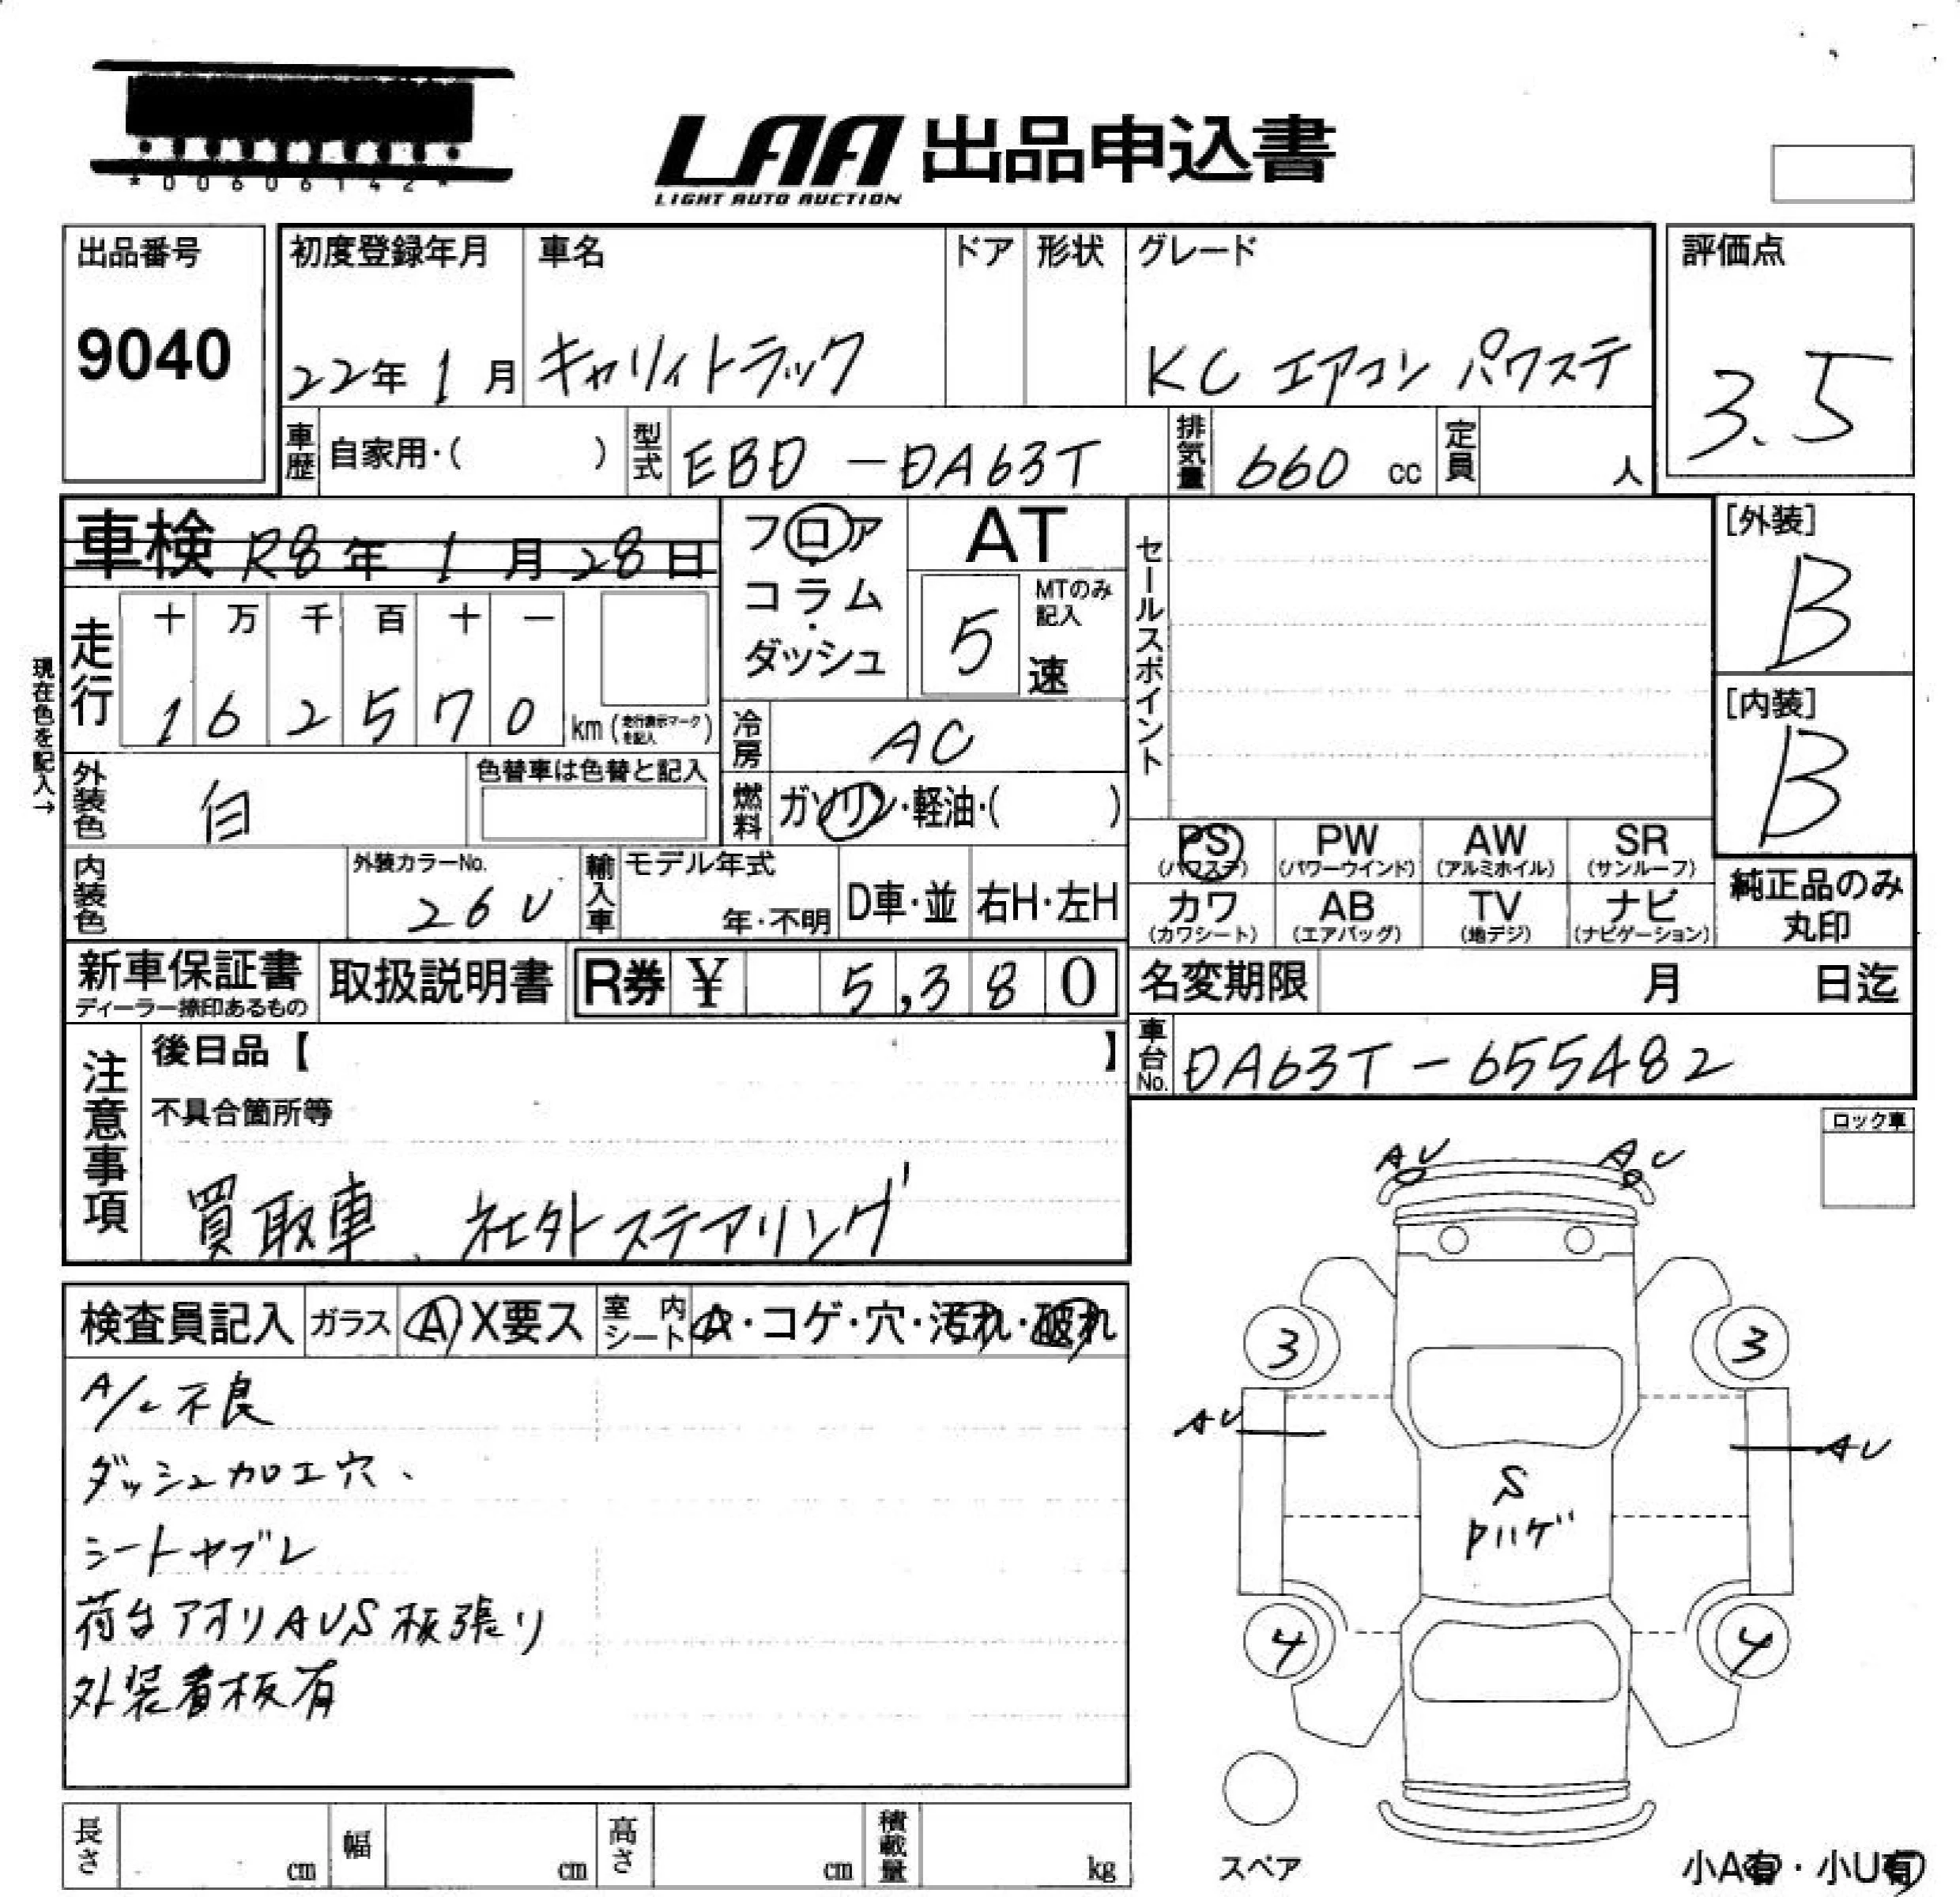 *00606142*
LAA 出品申込書
LIGHT AUTO AUCTION
出品番号
9040
初度登録年月 車名 ドア 形状 グレード
22年 1月 キャリイトラック KC エアコン パワステ
評価点
3.5
車歴 自家用・( ) 型式 EBD-DA63T 排気量 660 cc 定員 人
車検 R8年 1月 28日
フロア・コラム・ダッシュ
AT
MTのみ記入
5 速
セールスポイント
[外装]
B
[内装]
B
現在色を記入→
走行 十 万 千 百 十 一
1 6 2 5 7 0 km (走行表示マークを記入)
冷房 AC
外装色 白 色替車は色替と記入
燃料 ガソリン・軽油・( )
PS (パワステ) PW (パワーウインド) AW (アルミホイル) SR (サンルーフ)
カワ (カワシート) AB (エアバッグ) TV (地デジ) ナビ (ナビゲーション)
純正品のみ丸印
内装色 外装カラーNo. 26U 輸入車 モデル年式 年・不明 D車・並 右H・左H
新車保証書 ディーラー捺印あるもの 取扱説明書 R券 ¥ 5,380
名変期限 月 日迄
車台No. DA63T-655482
注意事項
後日品【 】
不具合箇所等
買取車、社外ステアリング
ロック車
検査員記入 ガラス A X要ス 室内シート A・コゲ・穴・汚れ・破れ
A/C不良
ダッシュ加工穴、
シートヤブレ
荷台アオリAUS板張り
外装看板有
AU AU
3 3
AU AU
S
Pハゲ
4 4
スペア
小A有・小U有
長さ cm 幅 cm 高さ cm 積載量 kg